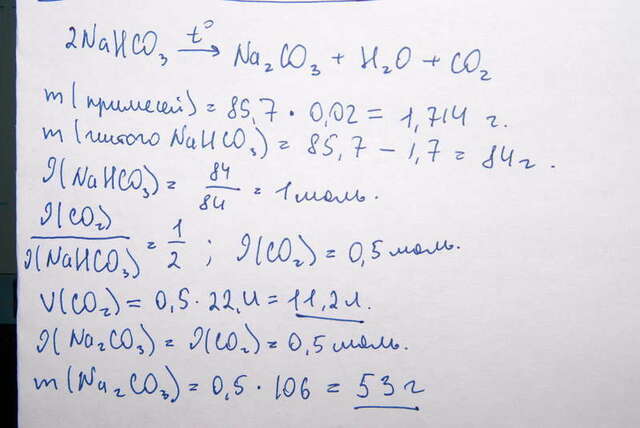 2NaHCO₃ t° → Na₂CO₃ + H₂O + CO₂
m(примесей) = 85,7 · 0,02 = 1,714 г.
m(чистого NaHCO₃) = 85,7 – 1,7 = 84 г.
ν(NaHCO₃) = 84/84 = 1 моль.
ν(CO₂)/ν(NaHCO₃) = 1/2 ; ν(CO₂) = 0,5 моль.
V(CO₂) = 0,5 · 22,4 = 11,2 л.
ν(Na₂CO₃) = ν(CO₂) = 0,5 моль.
m(Na₂CO₃) = 0,5 · 106 = 53 г